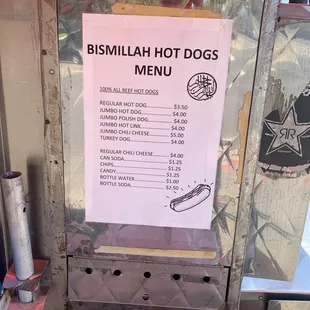 BISMILLAH HOT DOGS
MENU
100% ALL BEEF HOT DOGS
REGULAR HOT DOG..............$3.50
JUMBO HOT DOG.................$4.00
JUMBO POLISH DOG............$4.00
JUMBO HOT LINK................$4.00
JUMBO CHILI CHEESE...........$5.00
TURKEY DOG......................$4.00
REGULAR CHILI CHEESE......$4.00
CAN SODA.........................$1.25
CHIPS................................$1.25
CANDY..............................$1.25
BOTTLE WATER.................$1.00
BOTTLE SODA....................$2.50
R R